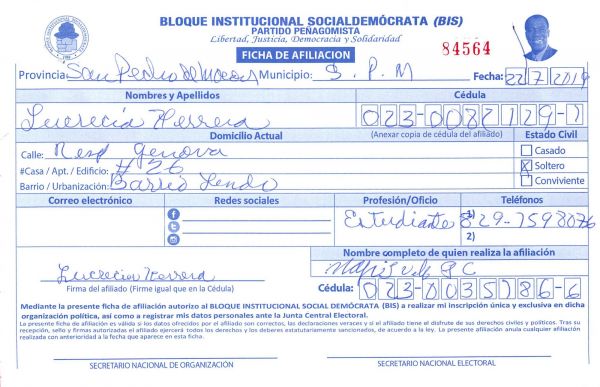 BLOQUE INSTITUCIONAL SOCIALDEMÓCRATA (BIS)
PARTIDO PEÑAGOMISTA
Libertad, Justicia, Democracia y Solidaridad
FICHA DE AFILIACION
84564
Provincia: San Pedro de Macorís Municipio: S. P. M Fecha: 22/7/2019
Nombres y Apellidos Cédula
Lucrecia Herrera 023-0082129-1
Domicilio Actual (Anexar copia de cédula del afiliado) Estado Civil
Calle: Resp Genova Casado
#Casa / Apt. / Edificio: # 56 X Soltero
Barrio / Urbanización: Barrio Lindo Conviviente
Correo electrónico Redes sociales Profesión/Oficio Teléfonos
Estudiante 1) 829-7598076
2)
Nombre completo de quien realiza la afiliación
Lucrecia Herrera
Firma del afiliado (Firme igual que en la Cédula) Cédula: 023-0035786-6
Mediante la presente ficha de afiliación autorizo al BLOQUE INSTITUCIONAL SOCIAL DEMÓCRATA (BIS) a realizar mi inscripción única y exclusiva en dicha
organización política, así como a registrar mis datos personales ante la Junta Central Electoral.
La presente ficha de afiliación es válida si los datos ofrecidos por el afiliado son correctos, las declaraciones veraces y si el afiliado tiene el disfrute de sus derechos civiles y políticos. Tras su
recepción, sello y firmas autorizadas el afiliado ejercerá todos los derechos y los deberes estatutariamente sancionados, de acuerdo a la ley. La presente afiliación anula cualquier afiliación
realizada con anterioridad a la fecha que aparece en esta ficha.
SECRETARIO NACIONAL DE ORGANIZACIÓN SECRETARIO NACIONAL ELECTORAL